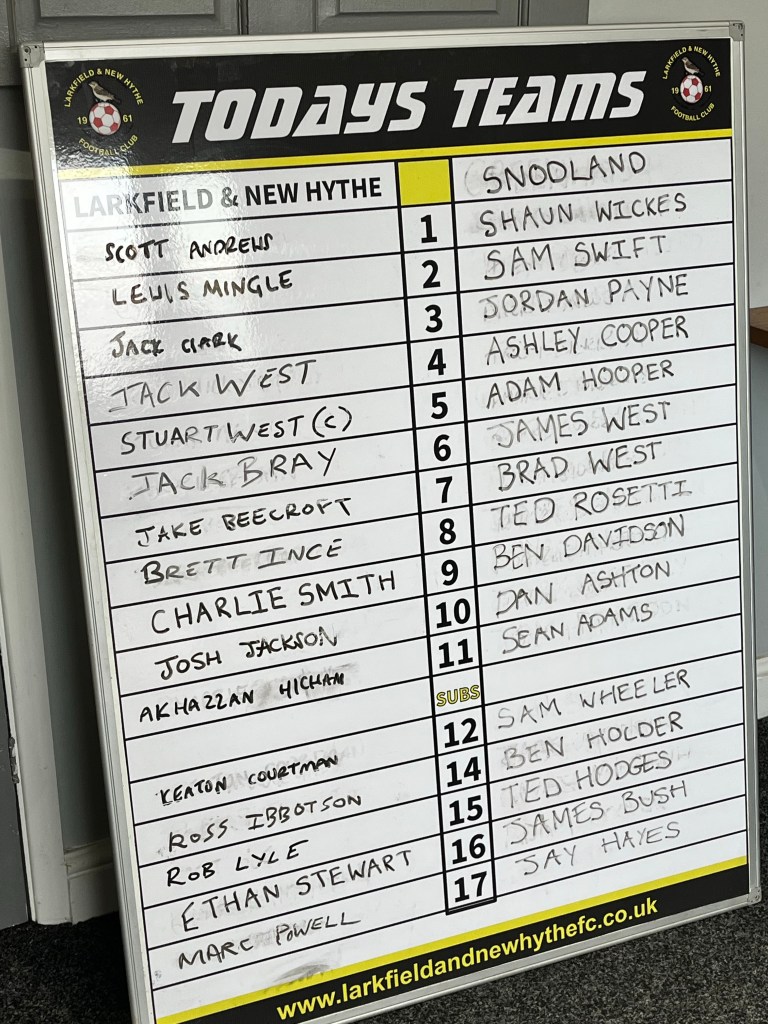 LARKFIELD & NEW HYTHE 1961 FOOTBALL CLUB
TODAYS TEAMS
LARKFIELD & NEW HYTHE 1961 FOOTBALL CLUB
LARKFIELD & NEW HYTHE SNODLAND
SCOTT ANDREWS 1 SHAUN WICKES
LEWIS MINGLE 2 SAM SWIFT
JACK CLARK 3 JORDAN PAYNE
JACK WEST 4 ASHLEY COOPER
STUART WEST (C) 5 ADAM HOOPER
JACK BRAY 6 JAMES WEST
JAKE BEECROFT 7 BRAD WEST
BRETT INCE 8 TED ROSETTI
CHARLIE SMITH 9 BEN DAVIDSON
JOSH JACKSON 10 DAN ASHTON
AKHAZZAN HICHAM 11 SEAN ADAMS
SUBS
KEATON COURTMAN 12 SAM WHEELER
ROSS IBBOTSON 14 BEN HOLDER
ROB LYLE 15 TED HODGES
ETHAN STEWART 16 JAMES BUSH
MARC POWELL 17 JAY HAYES
www.larkfieldandnewhythefc.co.uk